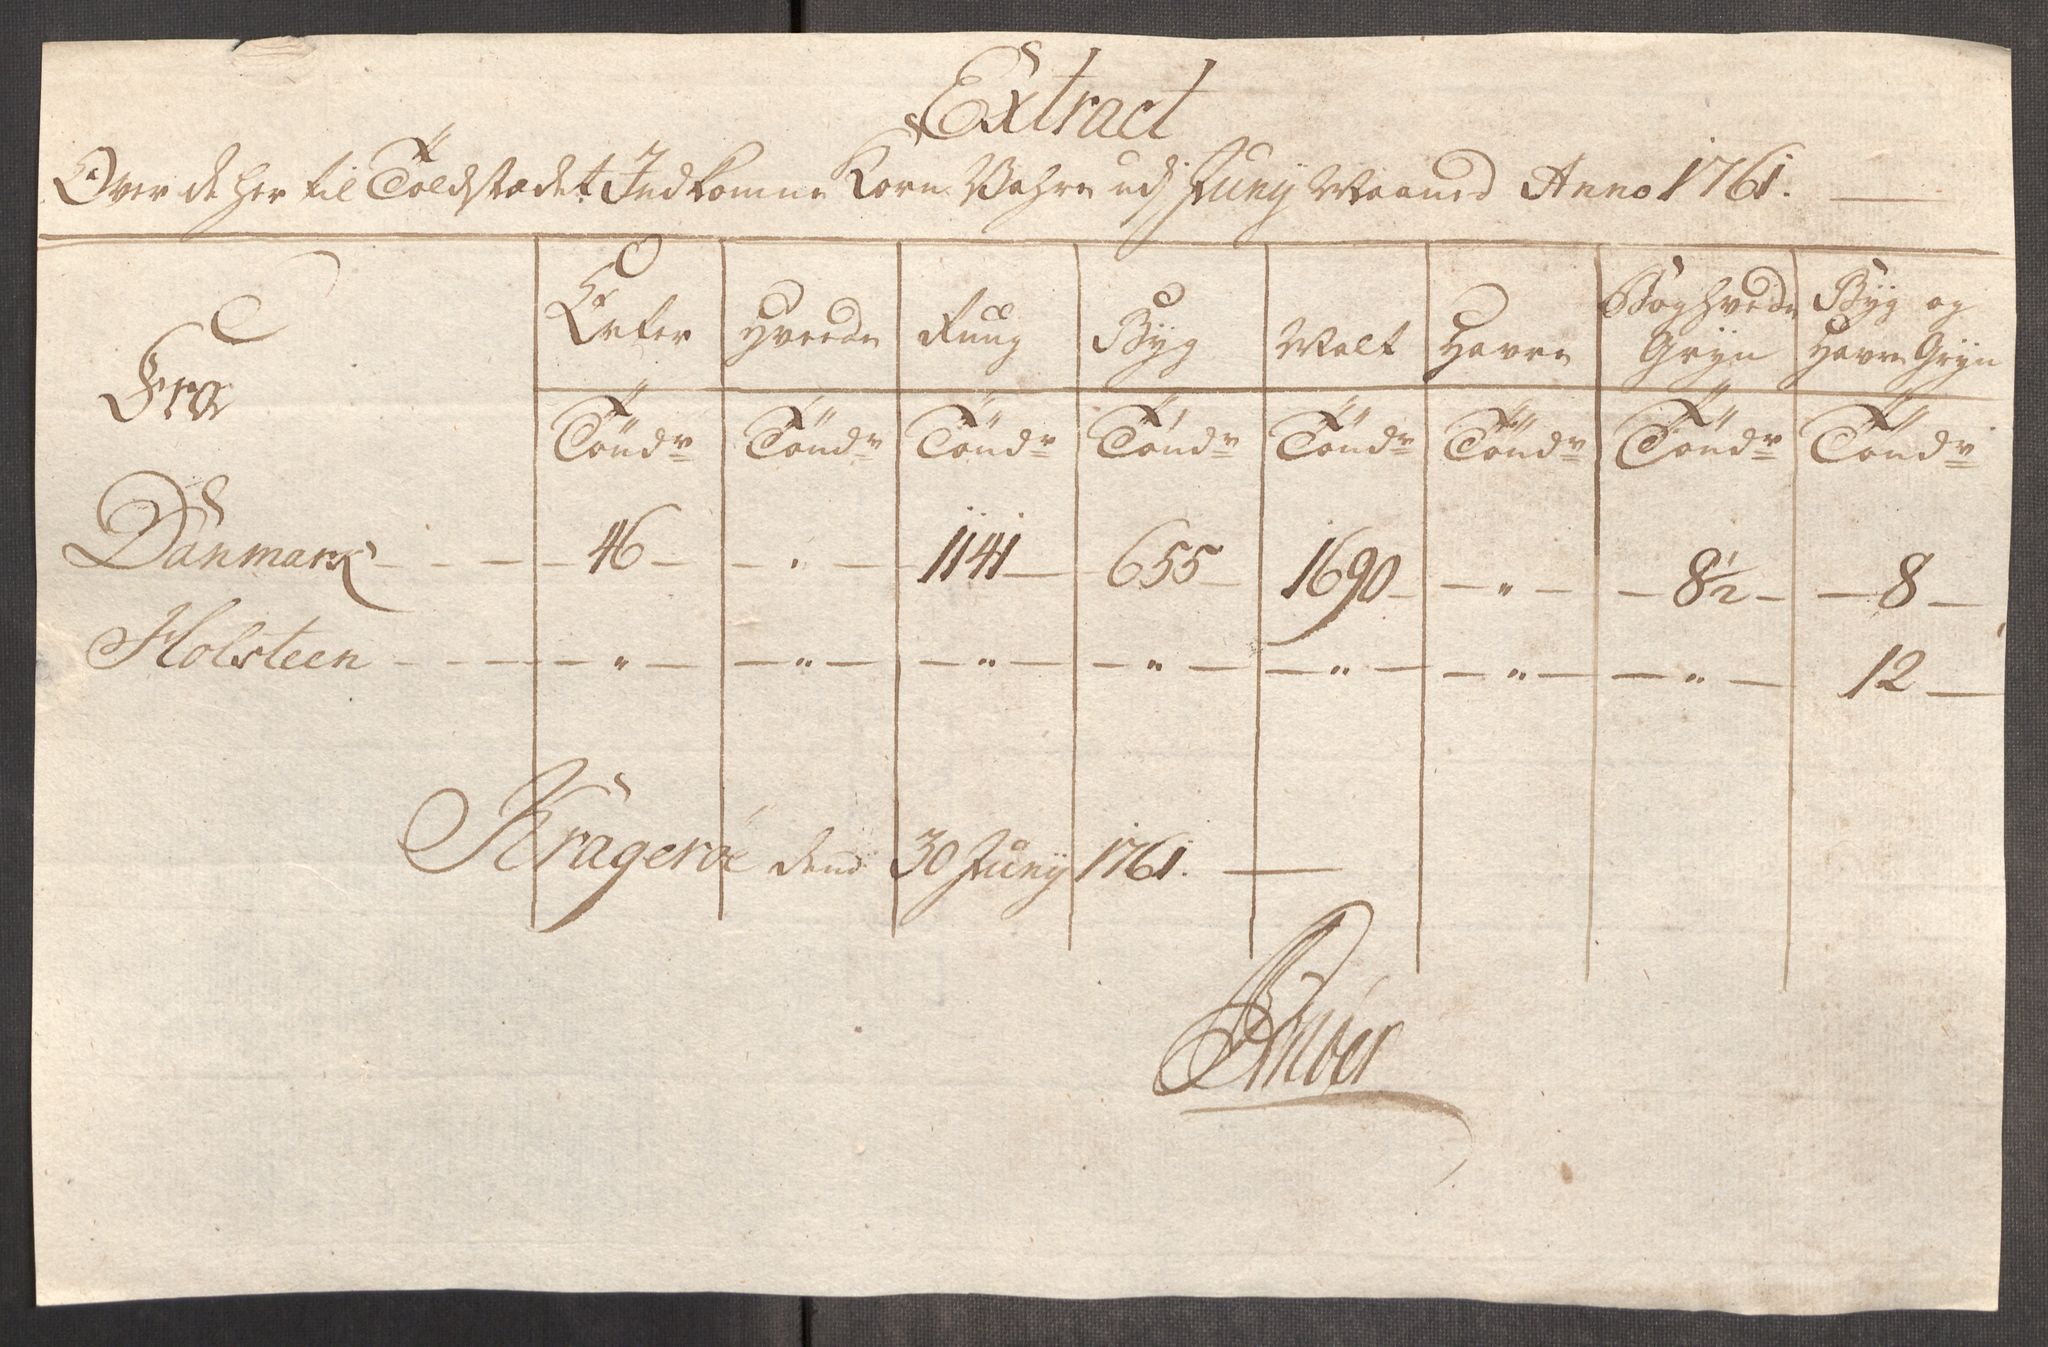 Extract
Over de her til Toldstædet Indkomne Korn Vahre udj Junij Maaned Anno 1761.
Fra | Erter | Hveede | Ruug | Byg | Malt | Havre | Boghvede Gryn | Byg og Havre Gryn
Töndr | Töndr | Töndr | Töndr | Töndr | Töndr | Töndr | Töndr
Danmark - - - 46 - - " - 1141 - 655 - 1690 - - " - - 8½ - - 8 -
Holsteen - - - - " - - " - - " - - " - - " - - " - - " - 12 -
Krageröe dend 30 Junij 1761.